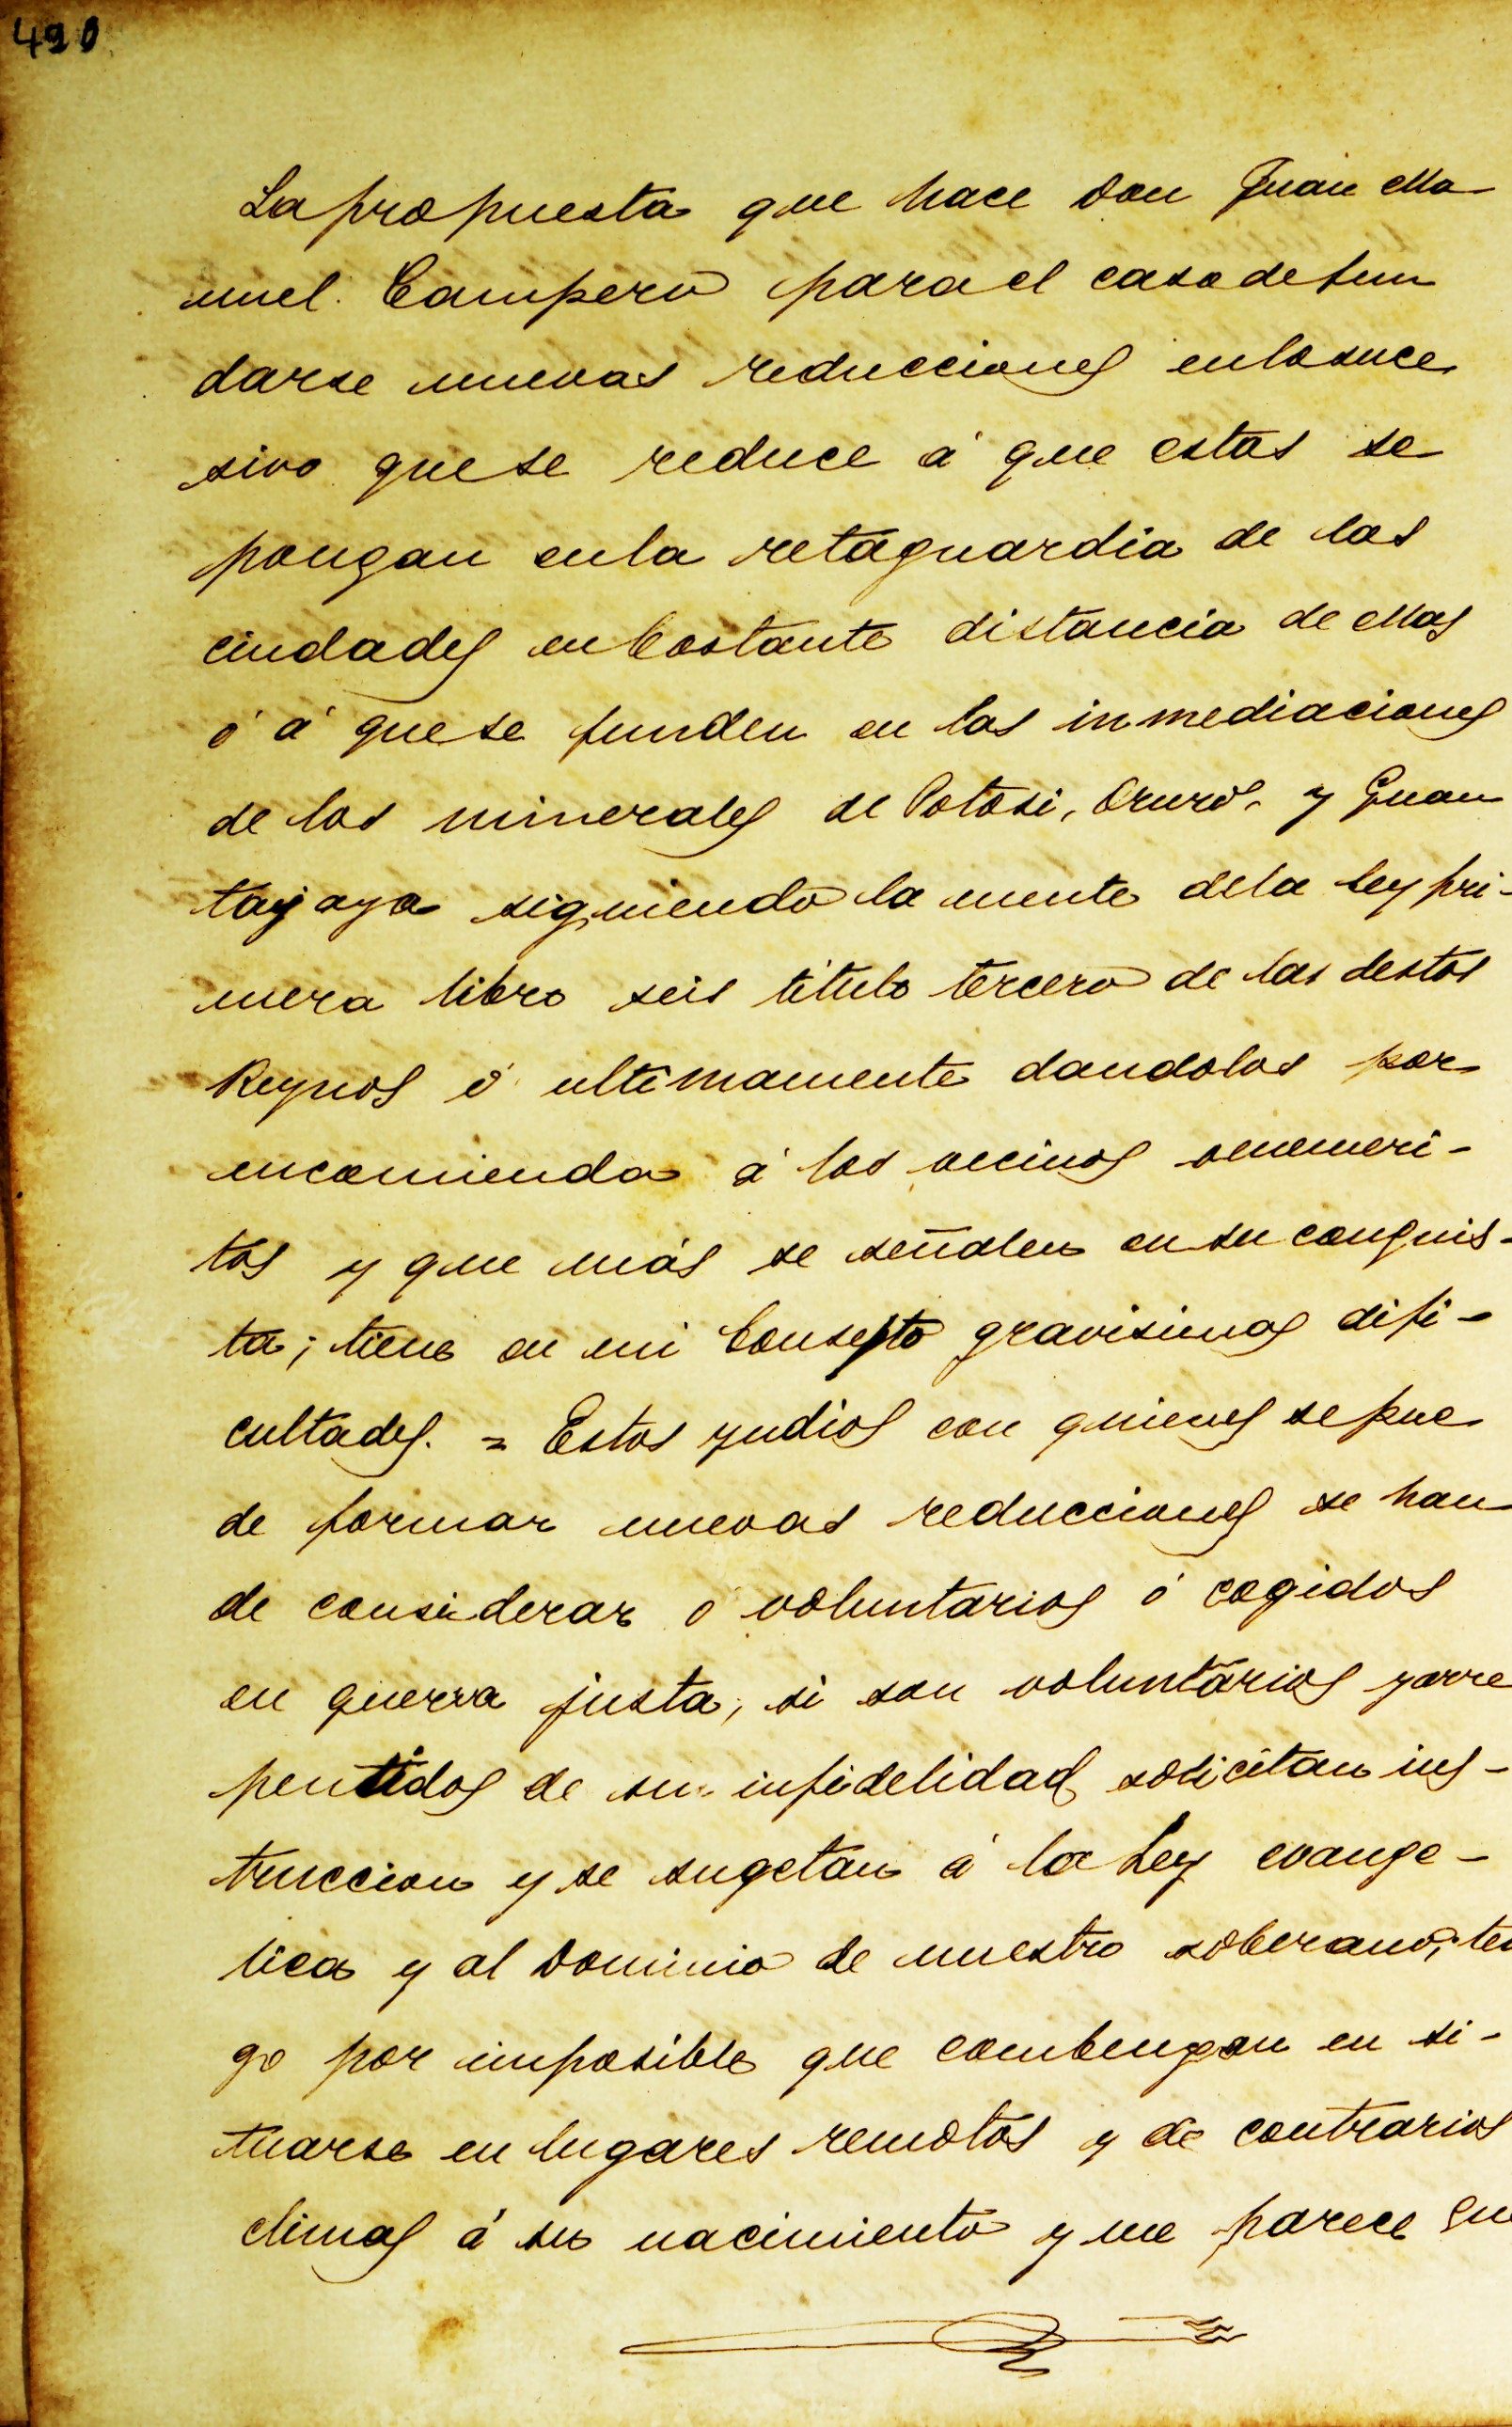 490
La propuesta que hace Don Juan Ma
nuel Campero para el caso de fun
darse nuevas reducciones en lo suce
sivo que se reduce á que estas se
pongan en la retaguardia de las
ciudades en bastante distancia de ellas
ó á que se funden en las inmediaciones
de los minerales de Potosi, Oruro, y Guan
tajaya siguiendo la mente de la ley pri-
mera libro seis titulo tercero de las destos
Reynos ó ultimamente dandolos por
encomienda á los vecinos venemeri-
tos y que más se señalen en su conquis-
ta; tiene en mi Consepto gravisimas difi-
cultades. = Estos yndios con quienes se pue
de formar nuevas reducciones se han
de considerar ó voluntarios ó cogidos
en guerra justa, si son voluntarios y arre
pentidos de su infidelidad solicitan ins-
truccion y se sugetan á la Ley evange-
lica y al Dominio de nuestro soberano, ten
go por imposible que combengan en si-
tuarse en lugares remotos y de contrarios
climas á su nacimiento y me parece que